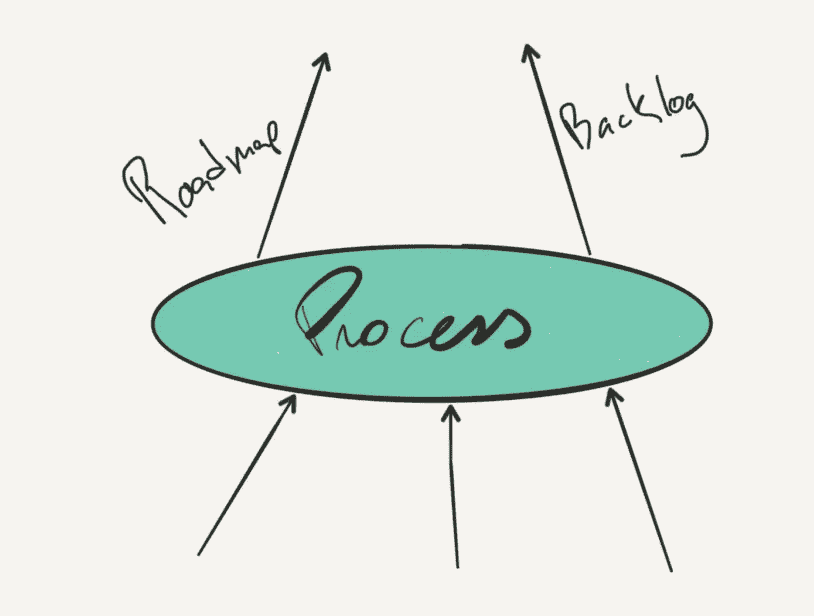 Roadmap
Backlog
Process